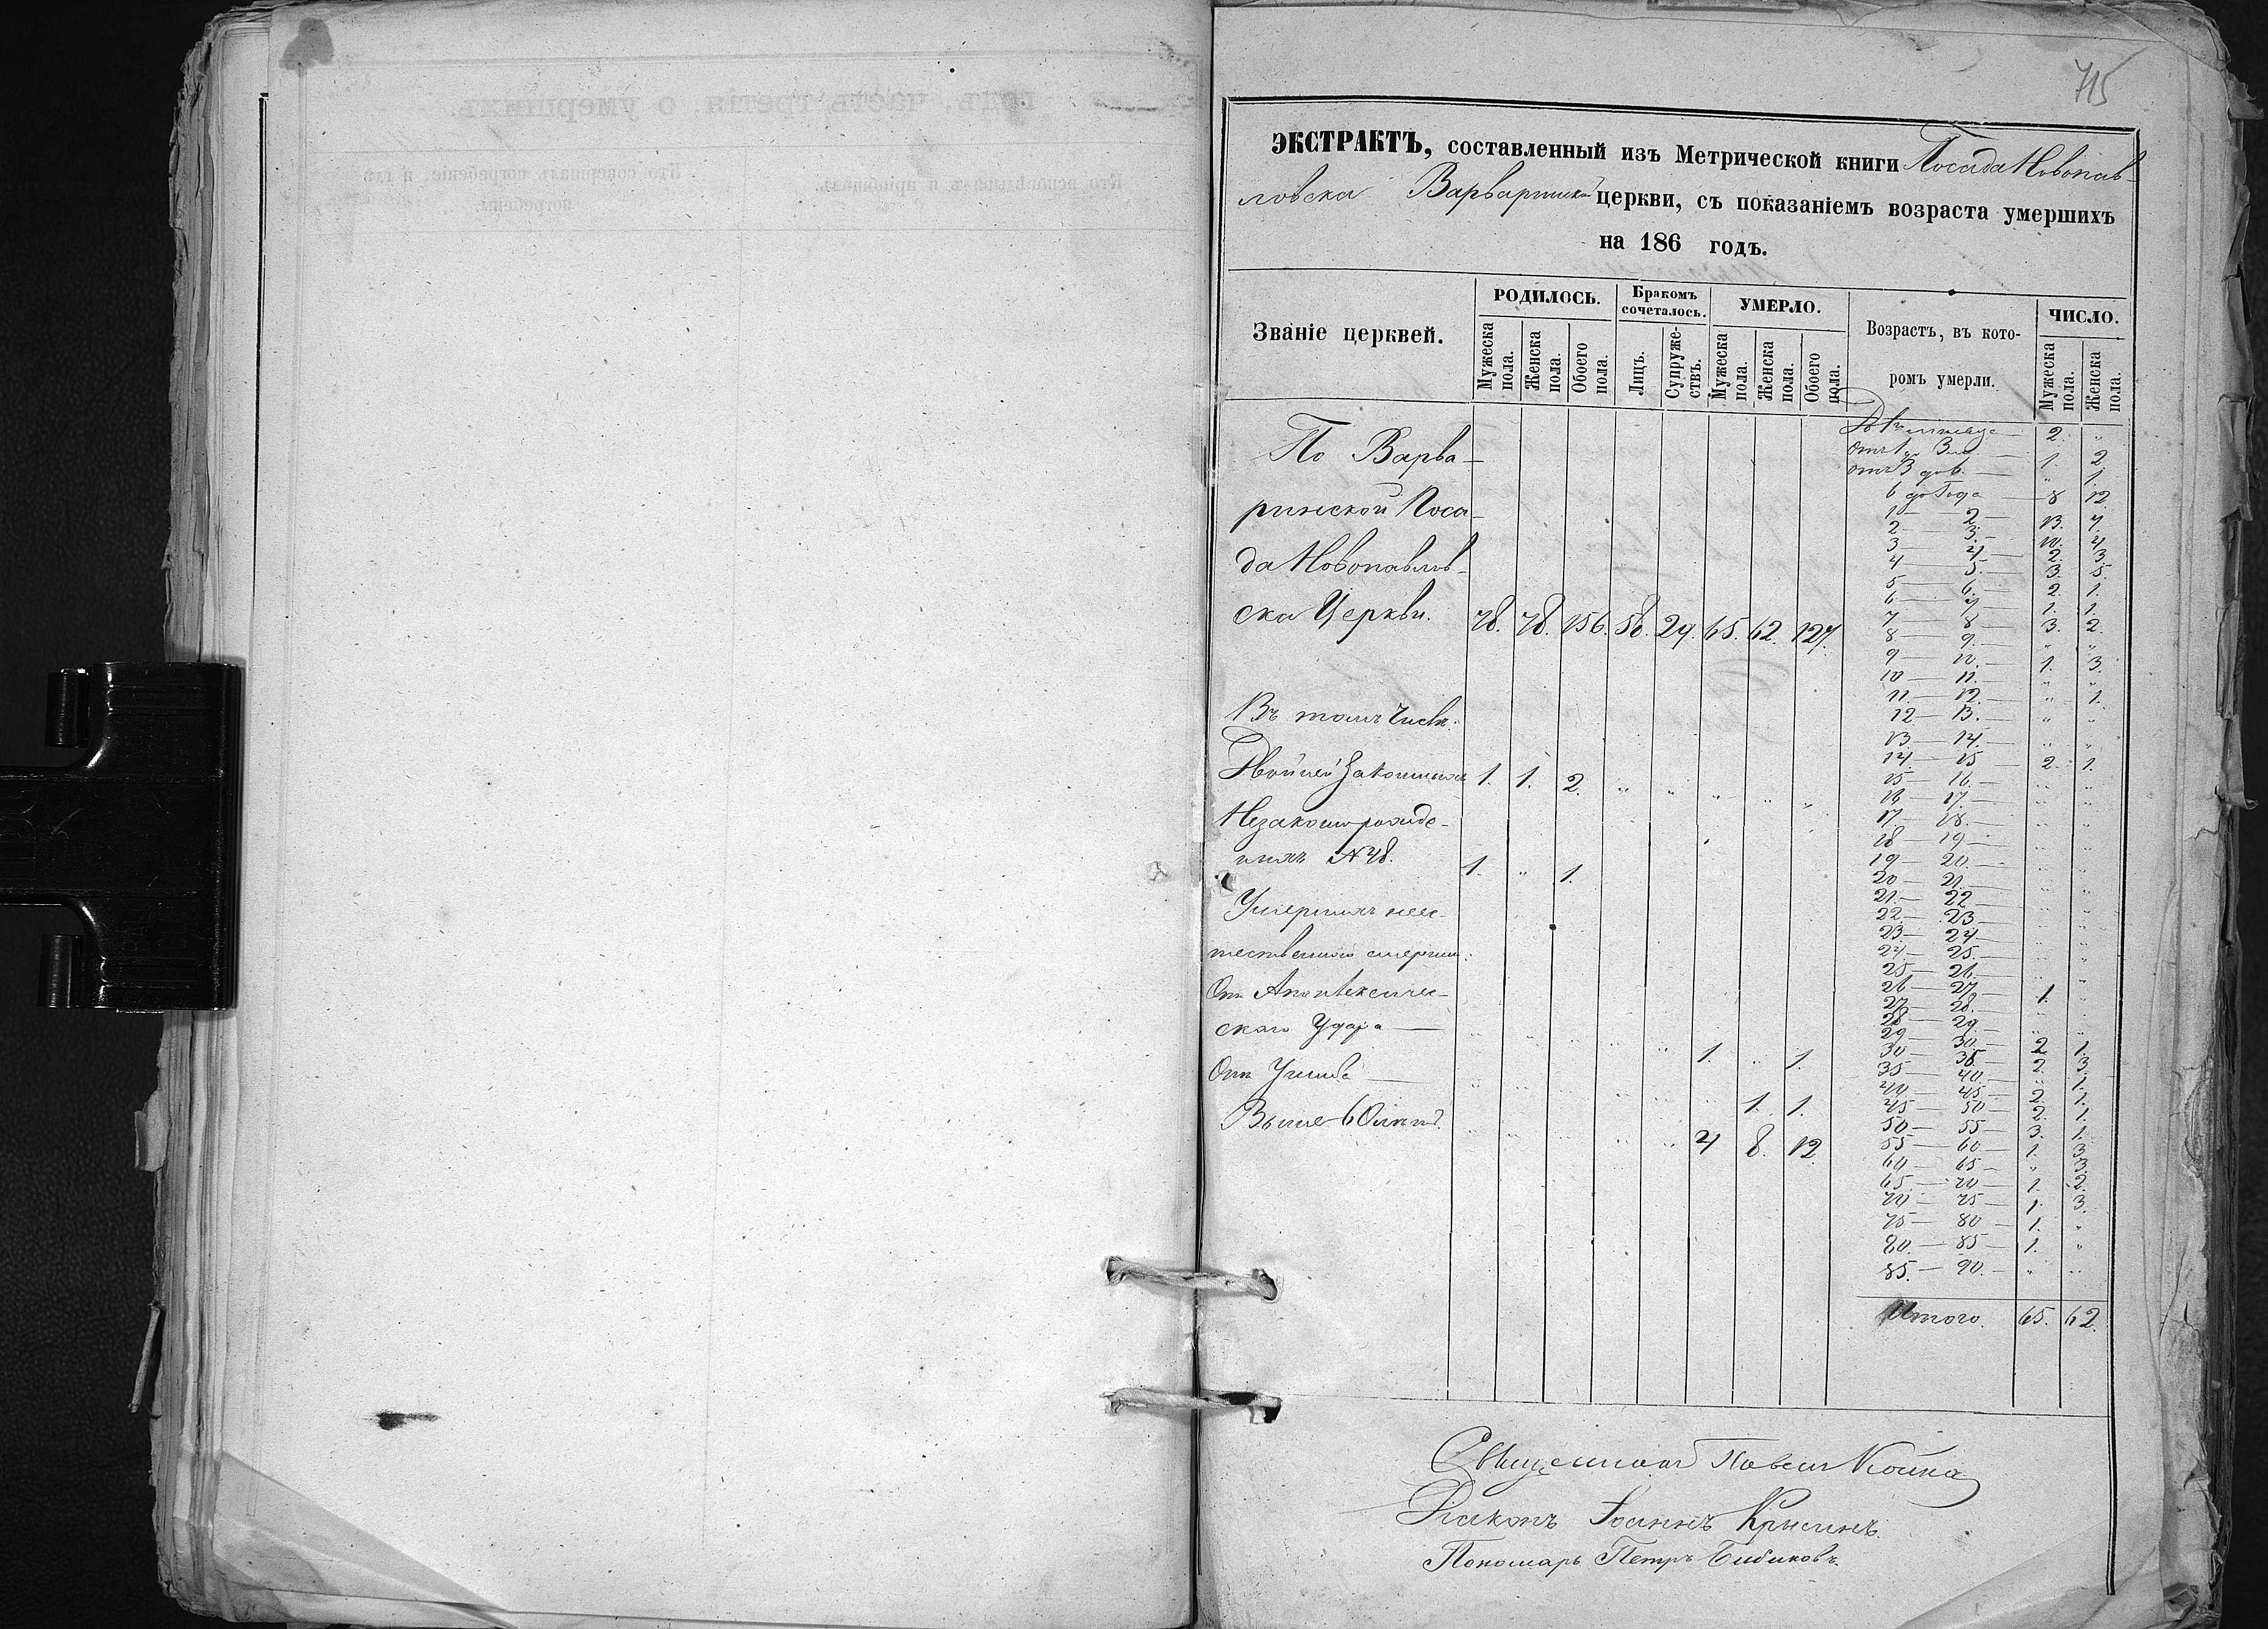 715
ЭКСТРАКТЪ, составленный изъ Метрической книги Посада Новопав-
ловска Варваринской церкви, съ показаніемъ возраста умершихъ
на 186 годъ.
Званіе церквей.
РОДИЛОСЬ.
Мужеска пола.
Женска пола.
Обоего пола.
Бракомъ сочеталось.
Лицъ.
Супружествъ.
УМЕРЛО.
Мужеска пола.
Женска пола.
Обоего пола.
Возрастъ, въ кото-
ромъ умерли.
ЧИСЛО.
Мужеска пола.
Женска пола.
По Варва-
ринской Поса-
да Новопавлов-
ска Церкви. 78. 78. 156. 58. 29. 65. 62. 127.
Въ томъ числѣ:
Двойней 1. 1. 2. " " " " "
Незаконнорожде-
нныхъ № 48. 1. " 1.
Умершихъ неес-
тественною смертию:
Отъ Апоплексичес-
скаго Удара — " " " " " 1. " 1.
От — " " " " " " 1. 1.
Выше 60 " " " " " 4 8. 12.
До 1 2. "
отъ 1 до 3 1. 2
отъ 3 до 6. — " 1.
6 до Года — 8 12
1 — 2 — 13. 7.
2 — 3. — 10. 4
3 — 4 — 2. 3
4 — 5. — 3. 5.
5 — 6. — 2. 1.
6 — 7 — 1. 1.
7 — 8 — 3. 2.
8 — 9. — " "
9 — 10. — 1. 3.
10 — 11. — " "
11. — 12. — " 1.
12 — 13. — " "
13 — 14. — " "
14. — 15 — 2. 1.
15 — 16. — " "
16 — 17. — " "
17. — 18. — " "
18 — 19 — " "
19 — 20. — " "
20 — 21. — " "
21. — 22 — " "
22. — 23 — " "
23 — 24 — " "
24. — 25. — " "
25 — 26. — " "
26 — 27 — 1. "
27 — 28. — " "
28 — 29 — " "
29 — 30. — 2 1.
30 — 35. — 2. 3.
35 — 40. — " 1.
40 — 45. — 2. 1.
45 — 50 — 2. 1.
50 — 55 — 3. 1.
55 — 60 — 1. 3
60 — 65 — " 3.
65. — 70 — 1. 2.
70 — 75 — 1. 3.
75 — 80 — 1. "
80. — 85 — 1. "
85. — 90. — " "
Итого. 65. 62.
Священникъ Павелъ
Діаконъ Іоаннъ Крысинъ.
Пономарь Петръ Бибиковъ.